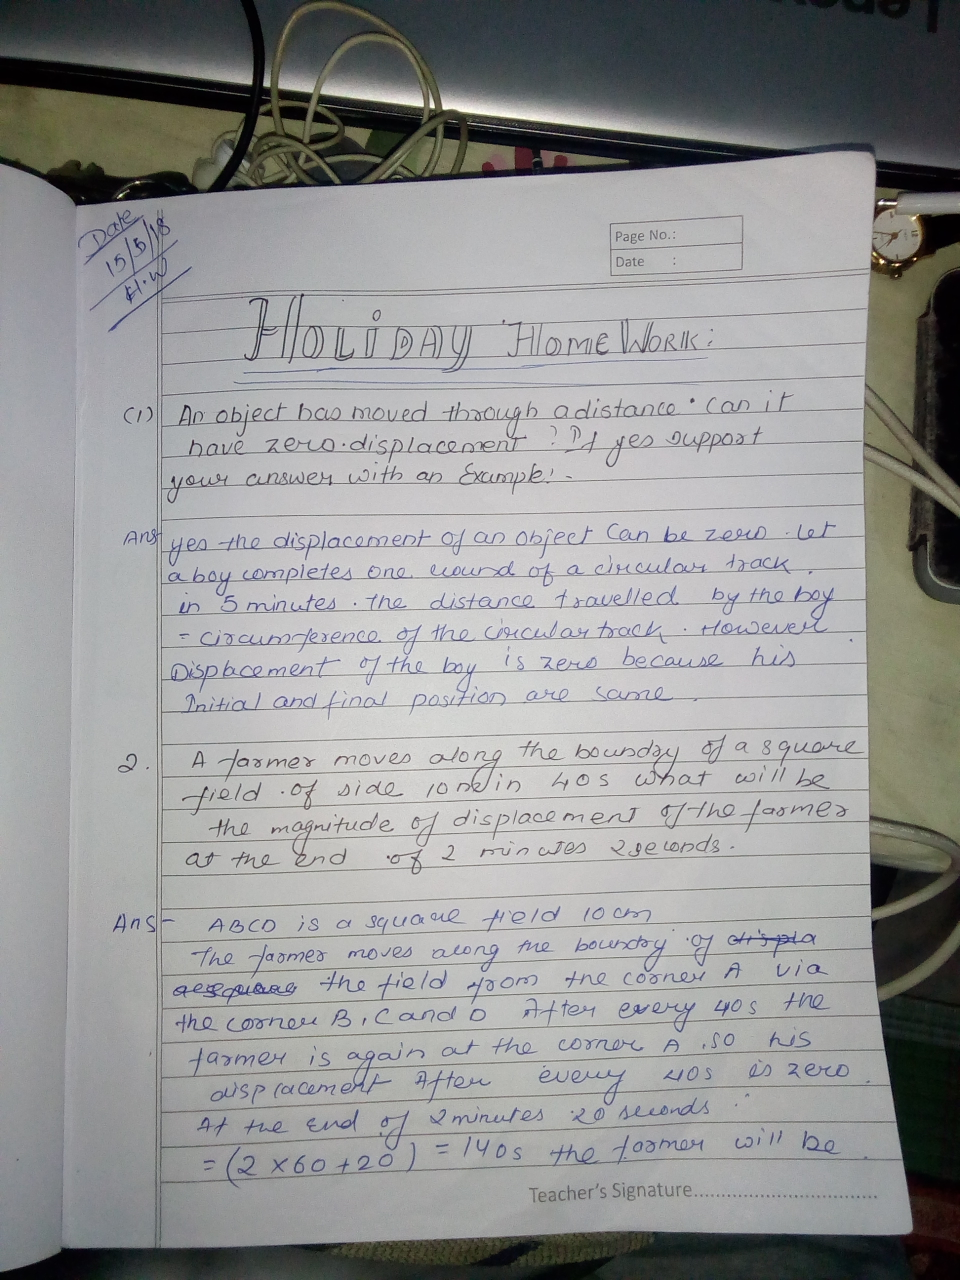 Date
15/5/18
H.W
Page No.:
Date :
HOLIDAY HOME WORK:
(1) An object has moved through a distance. can it
have zero displacement ? If yes support
your answer with an Example.
Ans yes the displacement of an object Can be zero. Let
a boy completes One round of a circular track.
in 5 minutes. the distance travelled by the boy
= circumference of the circular track. However
Displacement of the boy is zero because his
Initial and final position are same.
2. A farmer moves along the boundry of a square
field of side 10 m in 40s what will be
the magnitude of displacement of the farmer
at the end of 2 minutes 2seconds.
Ans- ABCD is a square field 10 cm
The farmer moves along the boundry of displa
the field from the corner A via
the corner B, C and D After every 40s the
farmer is again at the corner A, so his
displacement After every 40s is zero.
At the end of 2minutes 20 seconds
= (2 x 60 + 20) = 140s the farmer will be
Teacher's Signature